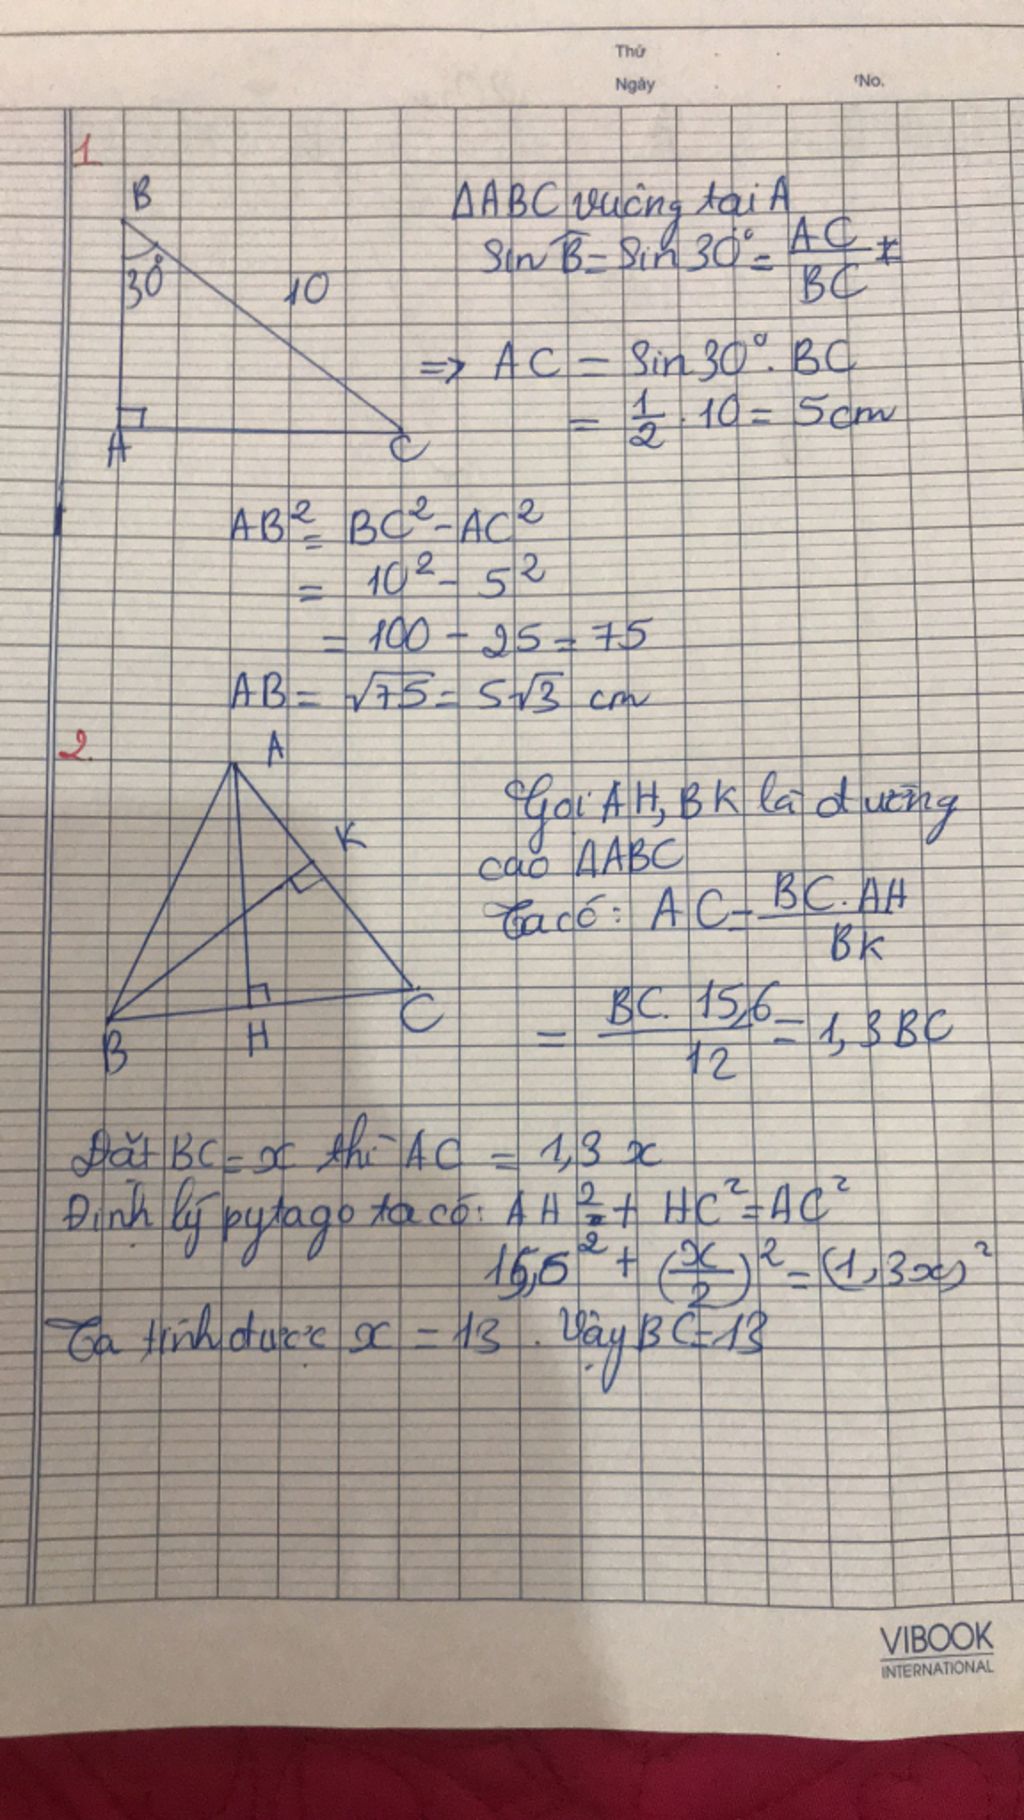 Thứ
Ngày
No.
1
B
30°
10
A
C
ΔABC vuông tại A
Sin B = Sin 30° = AC/BC
=> AC = Sin 30° . BC
= 1/2 . 10 = 5cm
AB² = BC² - AC²
= 10² - 5²
= 100 - 25 = 75
AB = √75 = 5√3 cm
2.
A
K
B
H
C
Gọi AH, BK là đường
cao ΔABC
Ta có: AC = BC. AH/BK
= BC. 15,6/12 = 1,3 BC
Đặt BC = x thì AC = 1,3 x
Định lý pytago ta có: AH² + HC² = AC²
15,6² + (x/2)² = (1,3x)²
Ta tính được x = 13 . Vậy BC = 13
VIBOOK
INTERNATIONAL